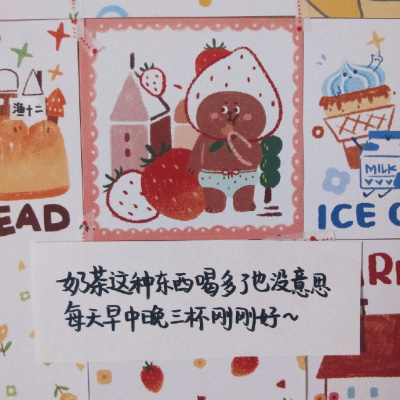 渔十二
EAD
MILK
ICE C
奶茶这种东西喝多了也没意思
每天早中晚三杯刚刚好~
AR